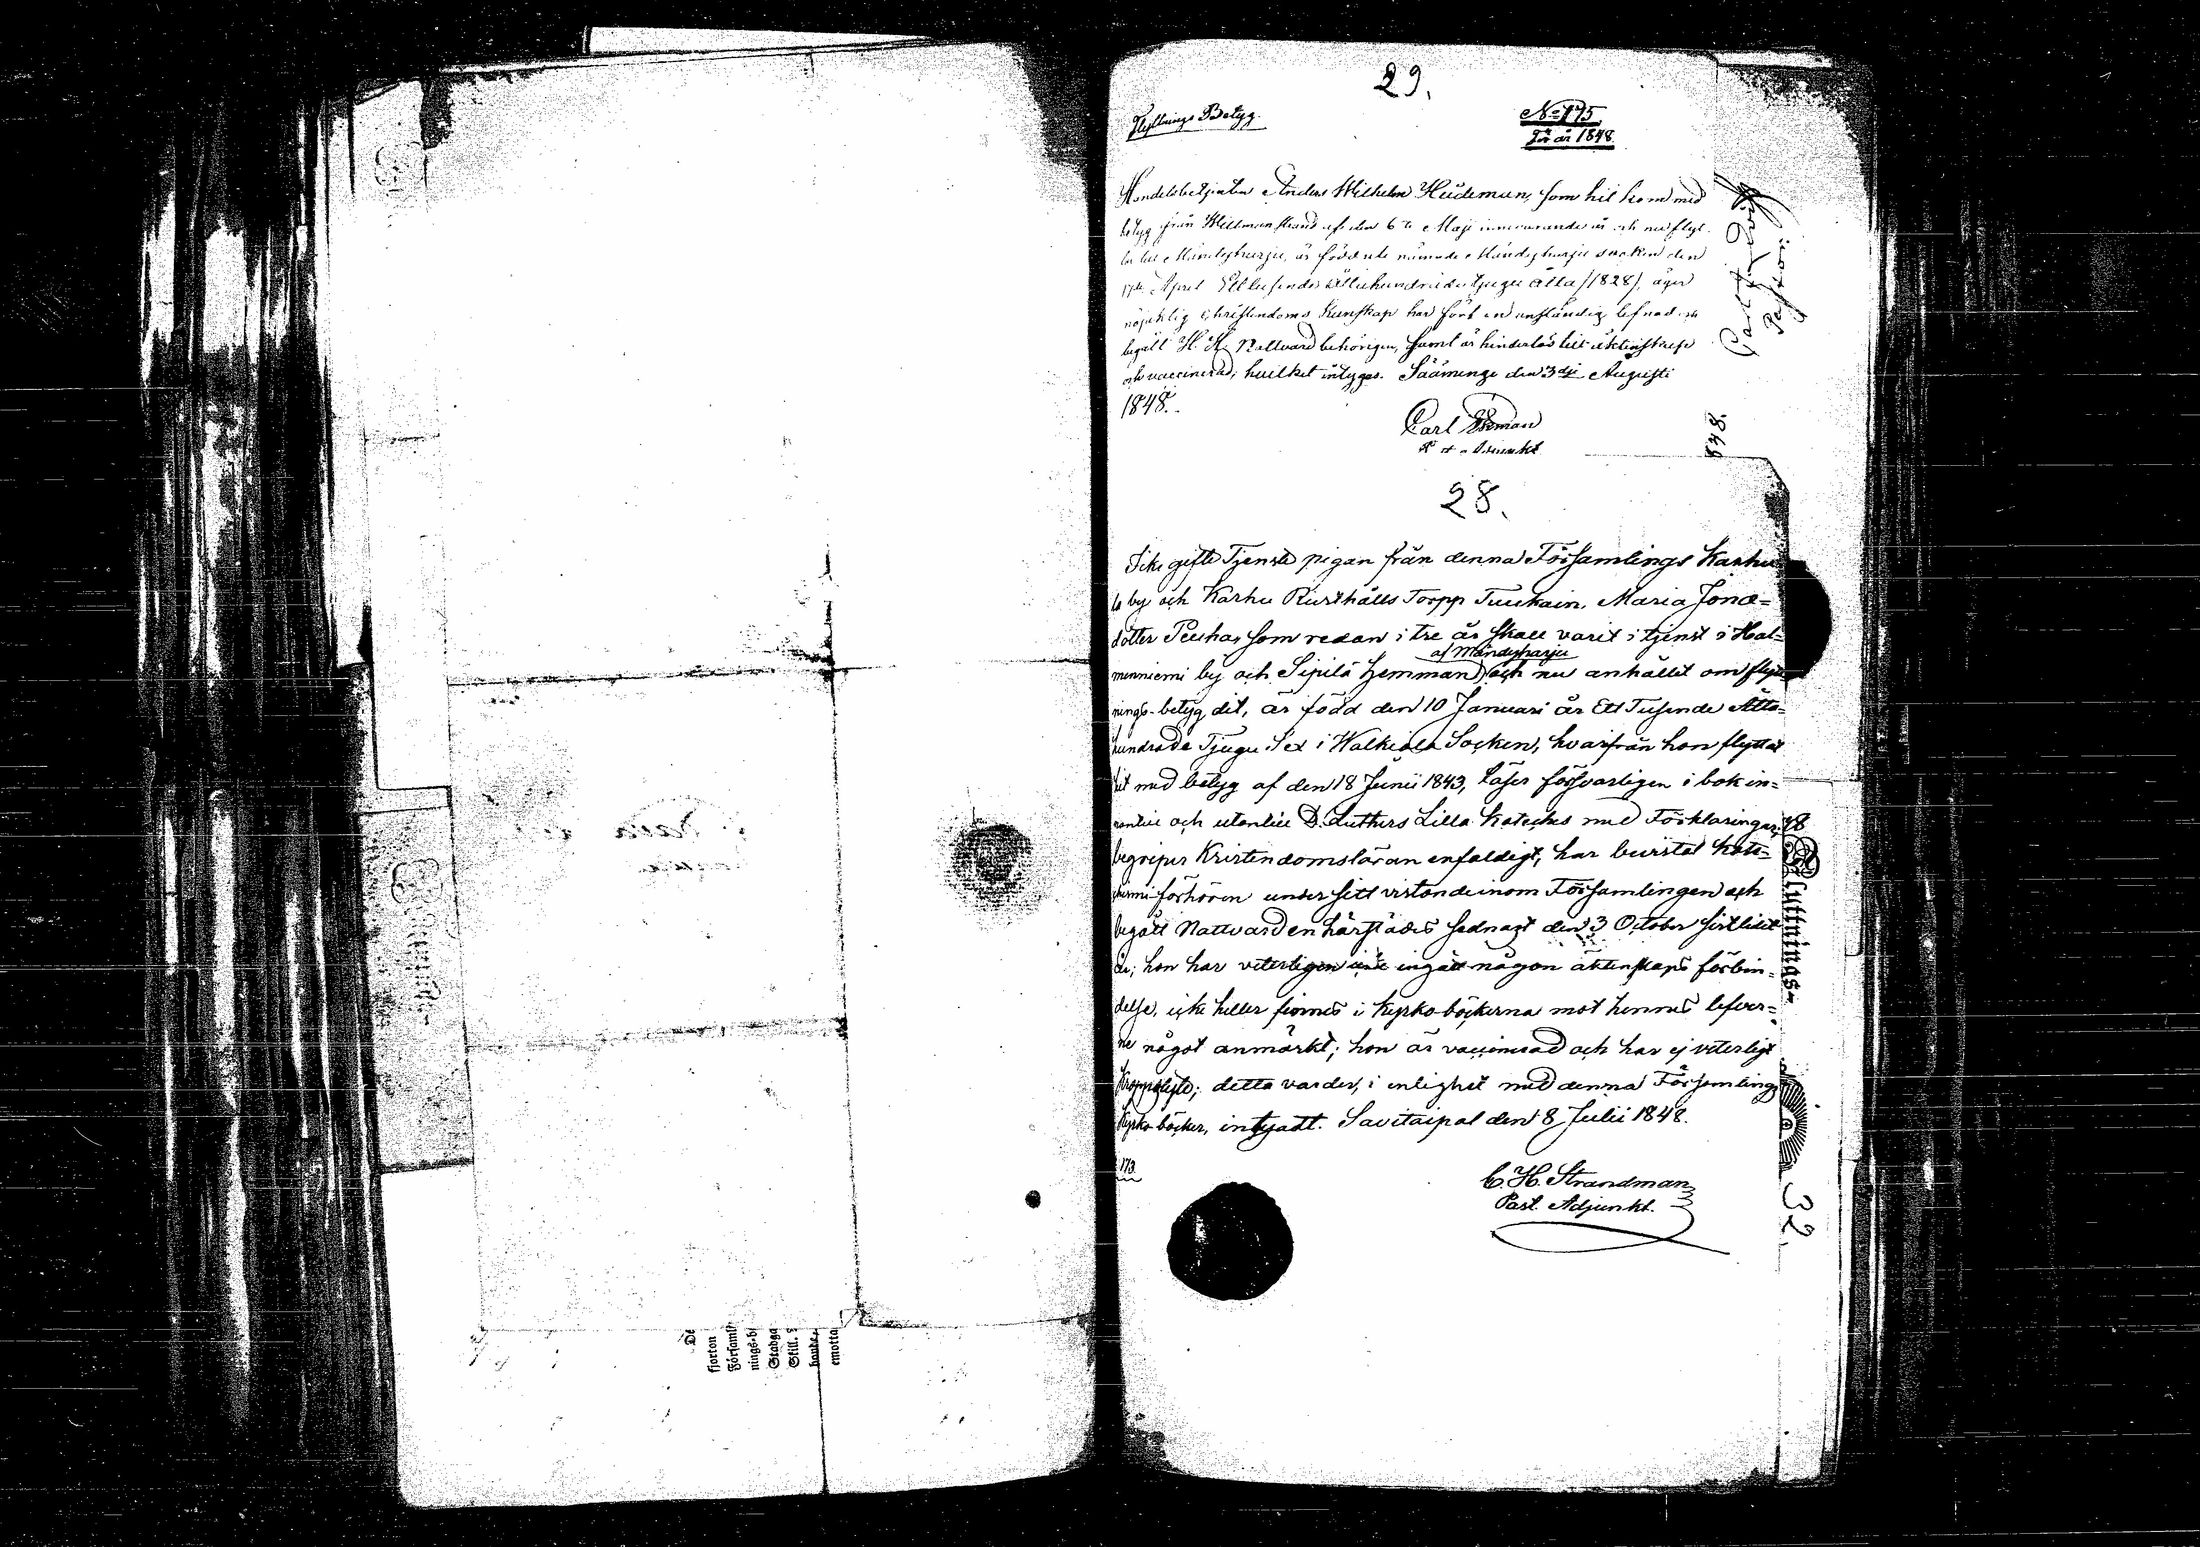 29.
Flyttnings Betyg.
No 175
för år 1848.
Handelsbetjenten Anders Wilhelm Hüdeman, som hit kom med
betyg från Willmanstrand af den 6te Maji innevarande år och nu flyt-
tar till Mändyharju, är född uti nämnde Mändyharju socken den
17de April Ett tusende åttahundrade tjugu åtta /1828/, äger
nöjaktig Christendoms kunskap har fört en anständig lefnad
begått H. H. Nattvard behörigen, samt är hinderlös till äktenskap
och vaccinerad; hvilket intygas. Säåminge den 3dje Augusti
1848.
Carl
Adjunkt
848.
28.
Icke gifta Tjenste pigan från denna Församlings Karhu
la by och Karhu Rusthålls Torpp Tuukain, Maria Jona=
dotter Peuha, som redan i tre år skall varit i tjenst i Hal=
af Mändyharju
menniemi by och Sipilä hemman och nu anhållit om flytt
nings-betyg dit, är född den 10 Januari år Ett Tusende Åtta=
hundrade Tjugu Sex i Walkeala Socken, hvarfrån hon flyttat
hit med betyg af den 18 Junii 1843, läser försvarligen i bok in=
nantill och utantill D. Luthers Lilla Kateches med Förklaringar,
begriper Kristendomsläran enfaldigt, har bevistat Kate=
chismi förhören under sitt vistande inom Församlingen och
begått Nattvarden härstädes sednast den 3 October sistlidit
år; hon har veterligen icke ingått någon äktenskaps förbin=
delse, icke heller finnes i Kyrko-böckerna mot hennes lefver=
ne något anmärkt; hon är vaccinerad och har ej veterligt
Kroppslyte; detta varder, i enlighet med denna Församlings
Kyrko böcker, intygadt. Savitaipal den 8 Julii 1848.
173
C. H. Strandman
Past. Adjunkt.
Fluttnings-
32.
fjorton
Församl
nings-b
Stadga
Skill.
emotta